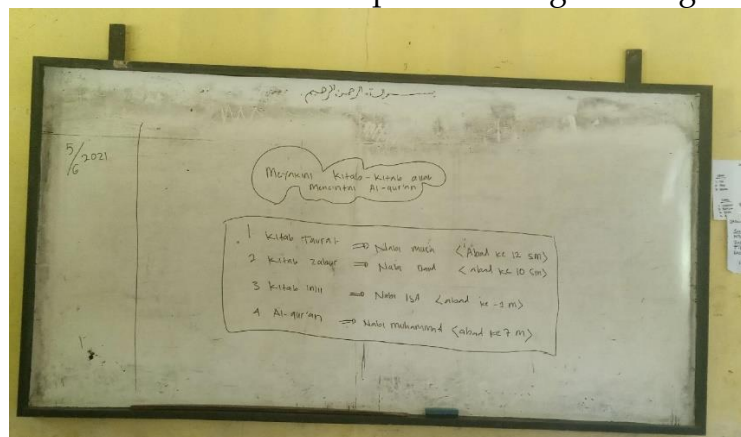 بسم الله الرحمن الرحيم
5/6 2021
Meyakini Kitab-Kitab
Mencintai Al-qur'an
1 Kitab Taurat => Nabi <Abad ke 12 SM>
2 Kitab Zabur => Nabi Daud <abad ke 10 SM>
3 Kitab Injil => Nabi ISA <abad ke -1 m>
4 Al-qur'an => Nabi muhammad <abad ke 7 m>